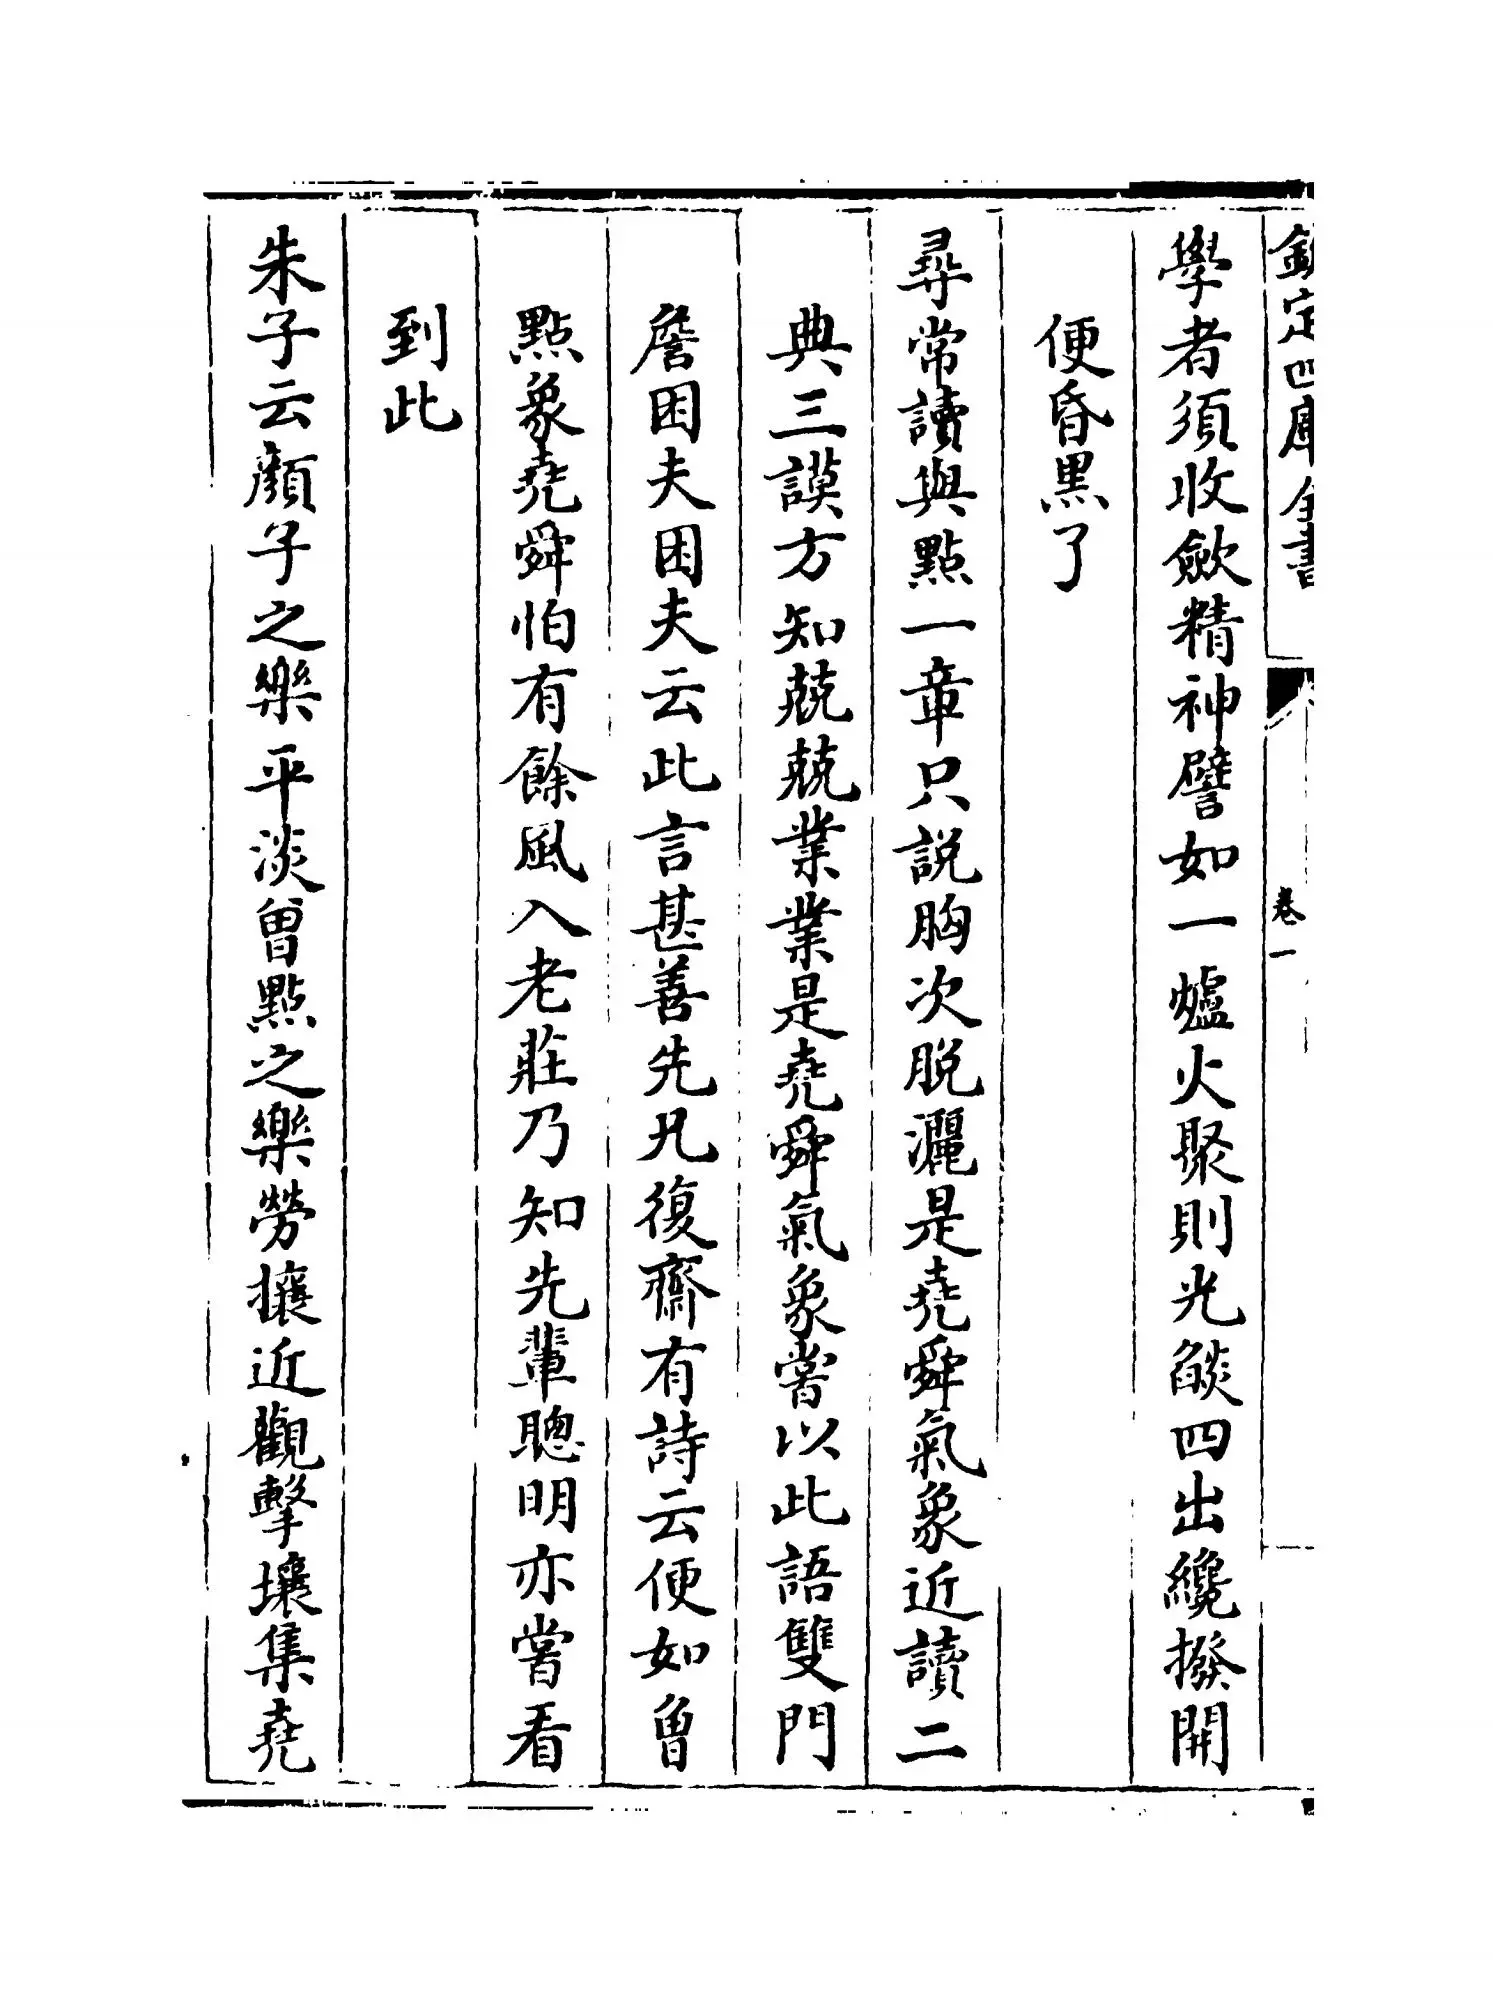 欽定四庫全書
卷一
學者須收歛精神譬如一爐火聚則光燄四出纔撥開
便昏黒了
尋常讀與點一章只説胸次脱灑是堯舜氣象近讀二
典三謨方知兢兢業業是堯舜氣象嘗以此語雙門
詹困夫困夫云此言甚善先兄復齋有詩云便如曾
點象堯舜怕有餘風入老莊乃知先輩聰明亦嘗看
到此
朱子云顔子之樂平淡曾點之樂勞攘近觀擊壤集堯